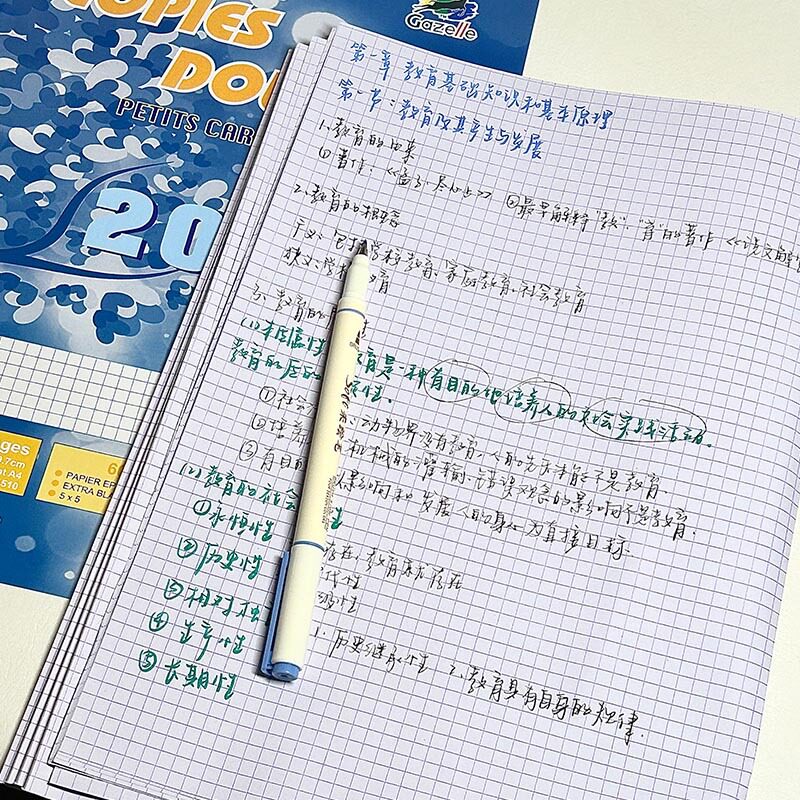 COPIES
DOU
PETITS CAR
Gazelle
20
ges
9.7cm
at A4
510
PAPIER EP
EXTRA BLA
5 x 5
第一章 教育基础知识和基本原理
第一节:教育及其产生与发展
1.教育的由来
①著作:《孟子·尽心上》 ②最早解释"教"、"育"的著作《说文解
2.教育的概念
广义:包括学校教育、家庭教育、社会教育
狭义:学校教育
3、教育的
(1)本质属性 教育是一种有目的地培养人的社会实践活动。
教育的质的 定性。
①社会 动物界没有教育,人的先天本能不是教育.
②培养 机械的灌输、错误观念的影响不是教育.
③有目的 影响和发展人的身心为直接目标.
(2)教育的社会 性
①永恒性 存在,教育就存在
②历史性 代性
③相对独 级性
④生产性 1.历史继承性 2.教育具有自身的规律.
⑤长期性